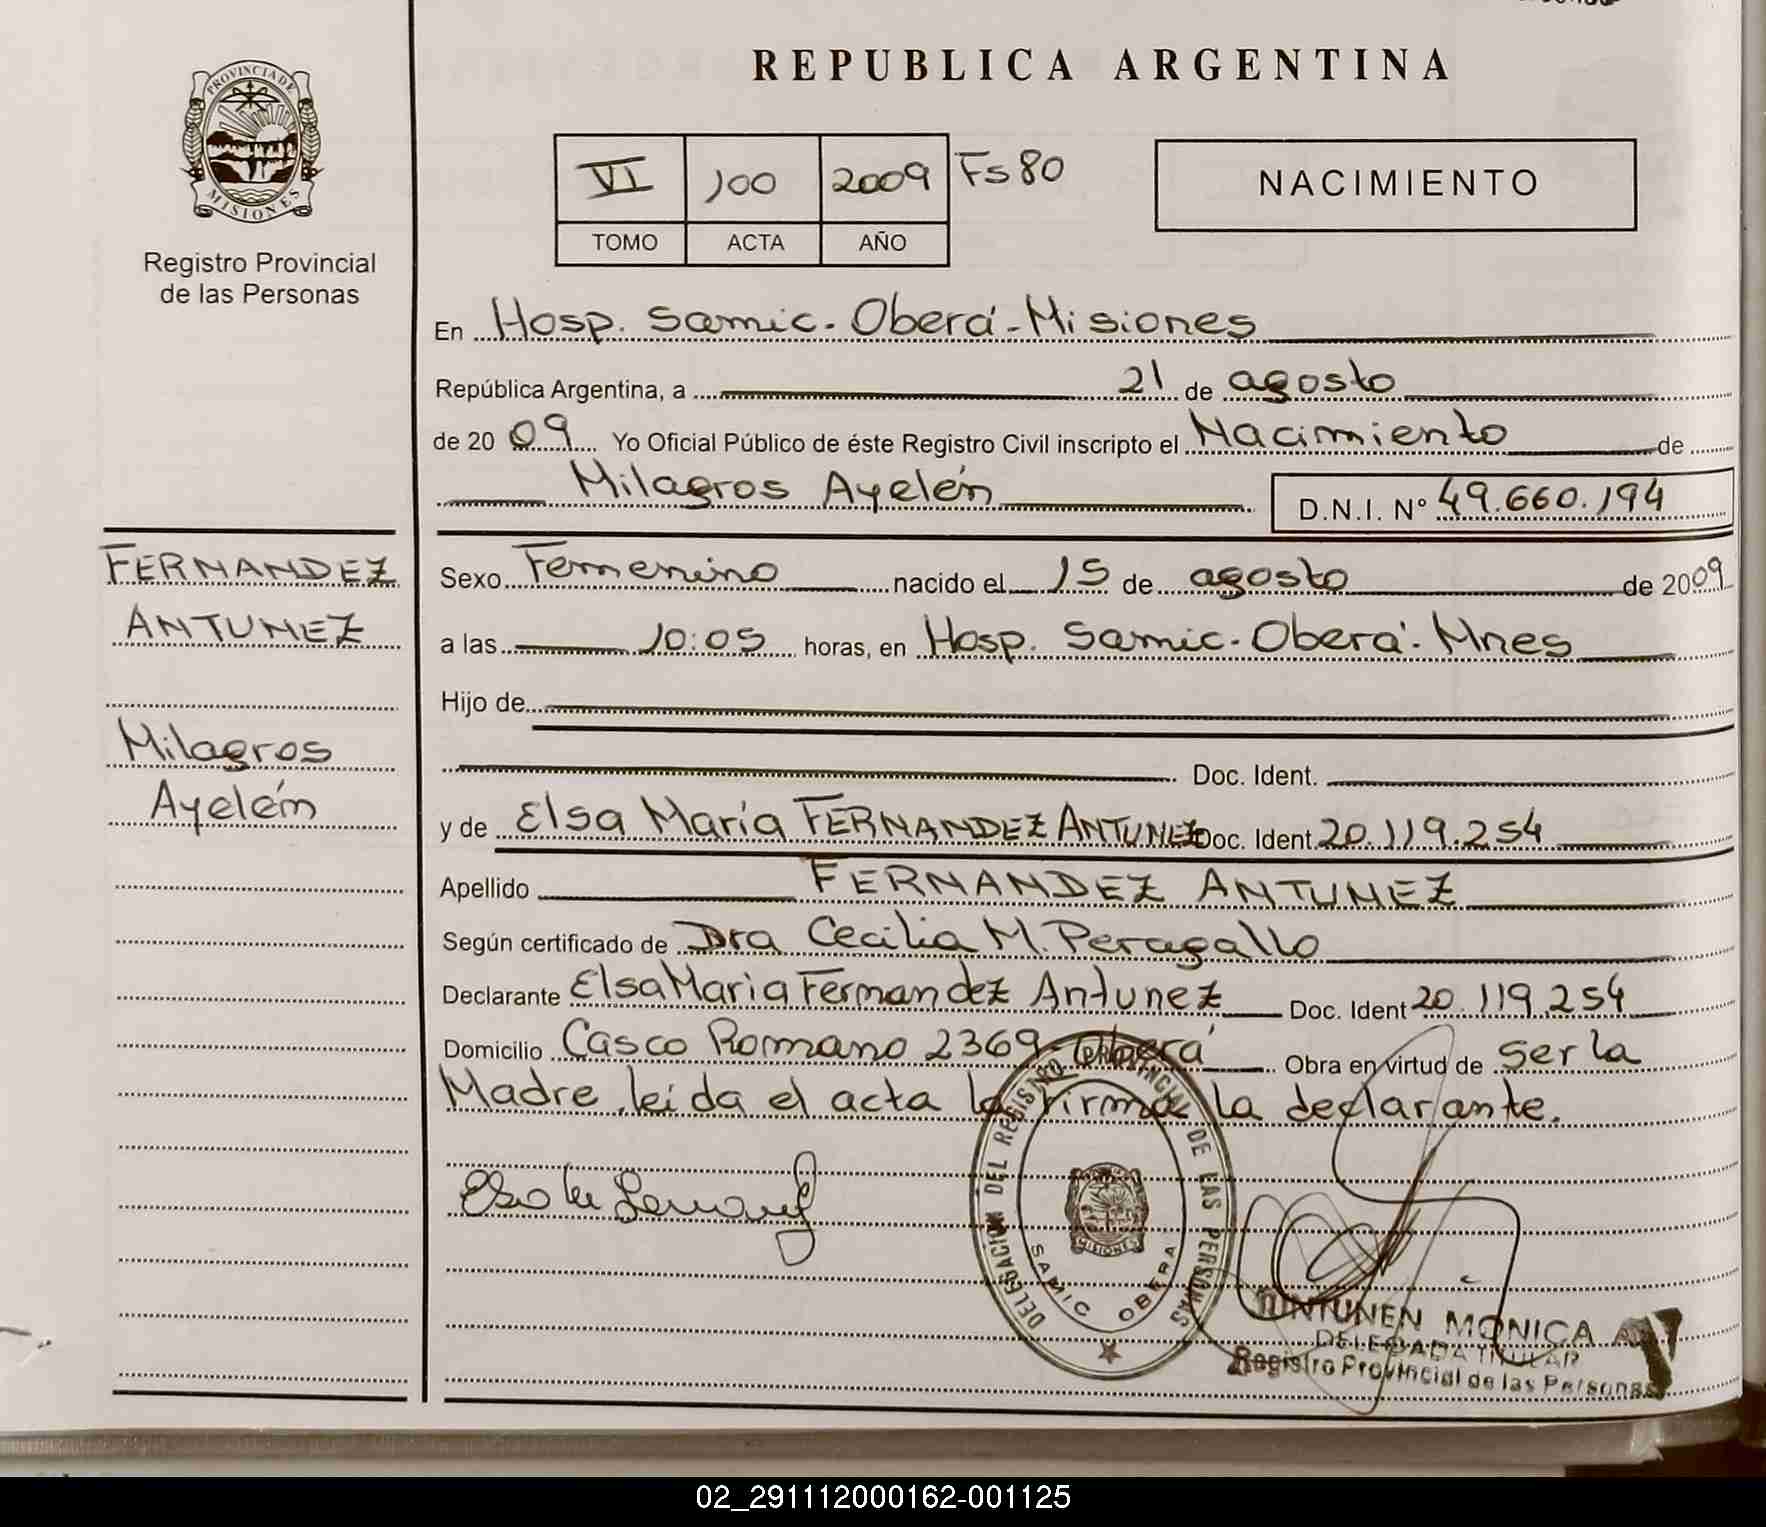 REPUBLICA ARGENTINA
PROVINCIA DE MISIONES
Registro Provincial
de las Personas
VI 100 2009 Fs 80
TOMO ACTA AÑO
NACIMIENTO
En Hosp. Samic. Oberá - Misiones
República Argentina, a 21 de agosto
de 2009 Yo Oficial Público de éste Registro Civil inscripto el Nacimiento de
Milagros Ayelén D.N.I. Nº 49.660.194
FERNANDEZ
ANTUNEZ
Milagros
Ayelén
Sexo Femenino nacido el 15 de agosto de 2009
a las 10:05 horas, en Hosp. Samic. Oberá. Mnes
Hijo de
Doc. Ident.
y de Elsa María FERNANDEZ ANTUNEZ Doc. Ident. 20.119.254
Apellido FERNANDEZ ANTUNEZ
Según certificado de Dra Cecilia M. Peragallo
Declarante Elsa Maria Fernandez Antunez Doc. Ident 20.119.254
Domicilio Casco Romano 2369 - Oberá Obra en virtud de ser la
Madre, leída el acta la firma la declarante.
DELEGACION DEL REGISTRO PROVINCIAL DE LAS PERSONAS
MISIONES
SAMIC OBERA
MONICA
DELEGADA TITULAR
Registro Provincial de las Personas
02_291112000162-001125